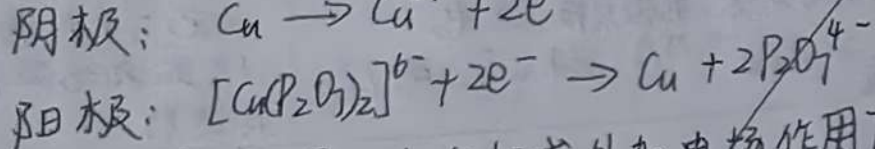 阴极: Cu → Cu + 2e
阳极: [Cu(P₂O₇)₂]⁶⁻ + 2e⁻ → Cu + 2P₂O₇⁴⁻
电场作用